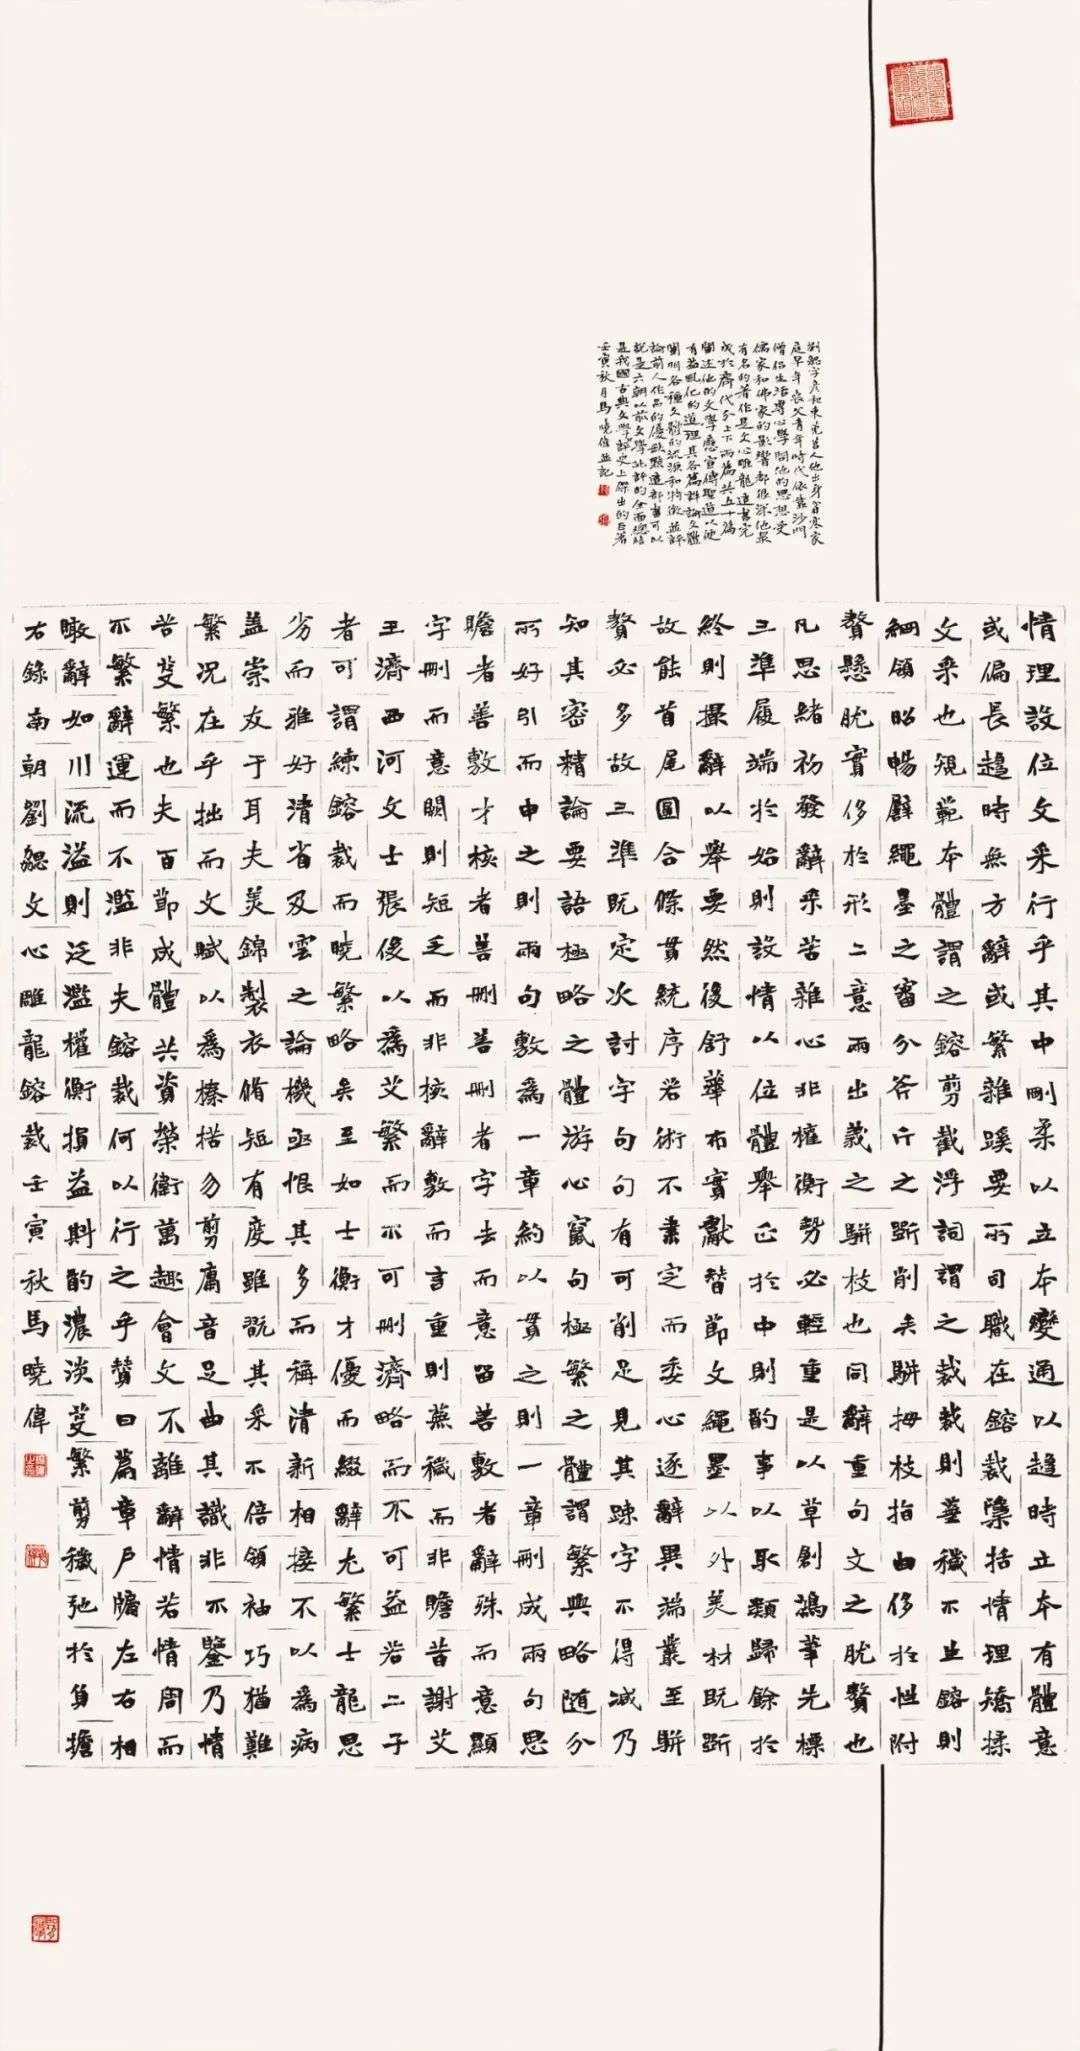 劉勰字彥和東莞莒人他出身貧寒家
庭早年喪父青年時代依靠沙門
僧侶生活專心學問他的思想受
儒家和佛家的影響都很深他最
有名的著作是文心雕龍這書完
成於齊代分上下兩篇共五十篇
闡述他的文學應宣傳聖道以便
有益風化的道理其各篇詳論文體
闡明各種文體的流源和特徵並評
論前人作品的優缺點這部書可以
說是六朝以前文學批評的全面總結
是我國古典文學評史上傑出的巨著
壬寅秋月馬曉偉並記
情理設位文采行乎其中剛柔以立本變通以趨時立本有體意
或偏長趨時無方辭或繁雜蹊要所司職在鎔裁檃括情理矯揉
文采也規範本體謂之鎔剪截浮詞謂之裁裁則蕪穢不生鎔則
綱領昭暢譬繩墨之審分斧斤之斲削矣駢拇枝指由侈於性附
贅懸肬實侈於形二意兩出義之駢枝也同辭重句文之肬贅也
凡思緒初發辭采苦雜心非權衡勢必輕重是以草創鴻筆先標
三準履端於始則設情以位體舉正於中則酌事以取類歸餘於
終則撮辭以舉要然後舒華布實獻替節文繩墨以外美材既斲
故能首尾圓合條貫統序若術不素定而委心逐辭異端叢至駢
贅必多故三準既定次討字句句有可削足見其疎字不得減乃
知其密精論要語極略之體游心竄句極繁之體謂繁與略隨分
所好引而申之則兩句敷為一章約以貫之則一章刪成兩句思
贍者善敷才核者善刪善刪者字去而意留善敷者辭殊而意顯
字刪而意闕則短乏而非核辭敷而言重則蕪穢而非贍昔謝艾
王濟西河文士張俊以為艾繁而不可刪濟略而不可益若二子
者可謂練鎔裁而曉繁略矣至如士衡才優而綴辭尤繁士龍思
劣而雅好清省及雲之論機亟恨其多而稱清新相接不以為病
蓋崇友于耳夫美錦製衣脩短有度雖翫其采不倍領袖巧猶難
繁況在乎拙而文賦以為榛楛勿剪庸音足曲其識非不鑒乃情
苦芟繁也夫百節成體共資榮衛萬趣會文不離辭情若情周而
不繁辭運而不濫非夫鎔裁何以行之乎贊曰篇章戶牖左右相
瞰辭如川流溢則泛濫權衡損益斟酌濃淡芟繁剪穢弛於負擔
右錄南朝劉勰文心雕龍鎔裁壬寅秋馬曉偉